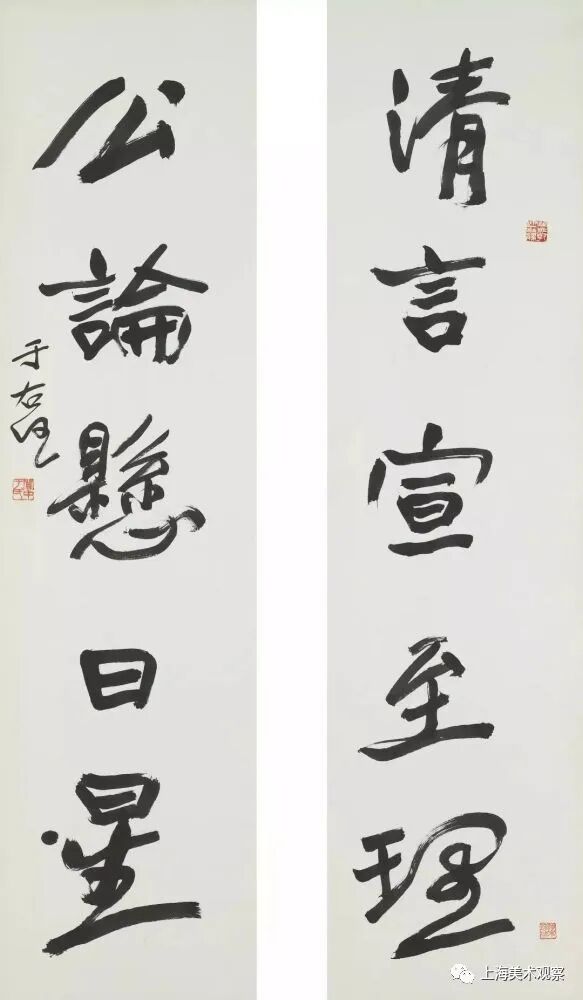 清言宣至理
公論懸日星
于右任
上海美术观察